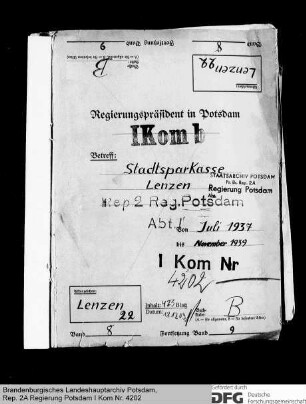 Lenzen
Regierungspräsident in Potsdam
I Kom b
Betreff:
Stadtsparkasse
Lenzen
STAATSARCHIV POTSDAM
Pr. Br. Rep. 2A
Regierung Potsdam
Rep 2 Reg. Potsdam
Abt. I
von Juli 1937
bis November 1939
I Kom Nr
4202
Lenzen
22
Inhalt: 173 Blatt
Datum:
B
Band 8
Fortsetzung Band 9
Brandenburgisches Landeshauptarchiv Potsdam,
Rep. 2A Regierung Potsdam I Kom Nr. 4202
Gefördert durch
DFG Deutsche
Forschungsgemeinschaft